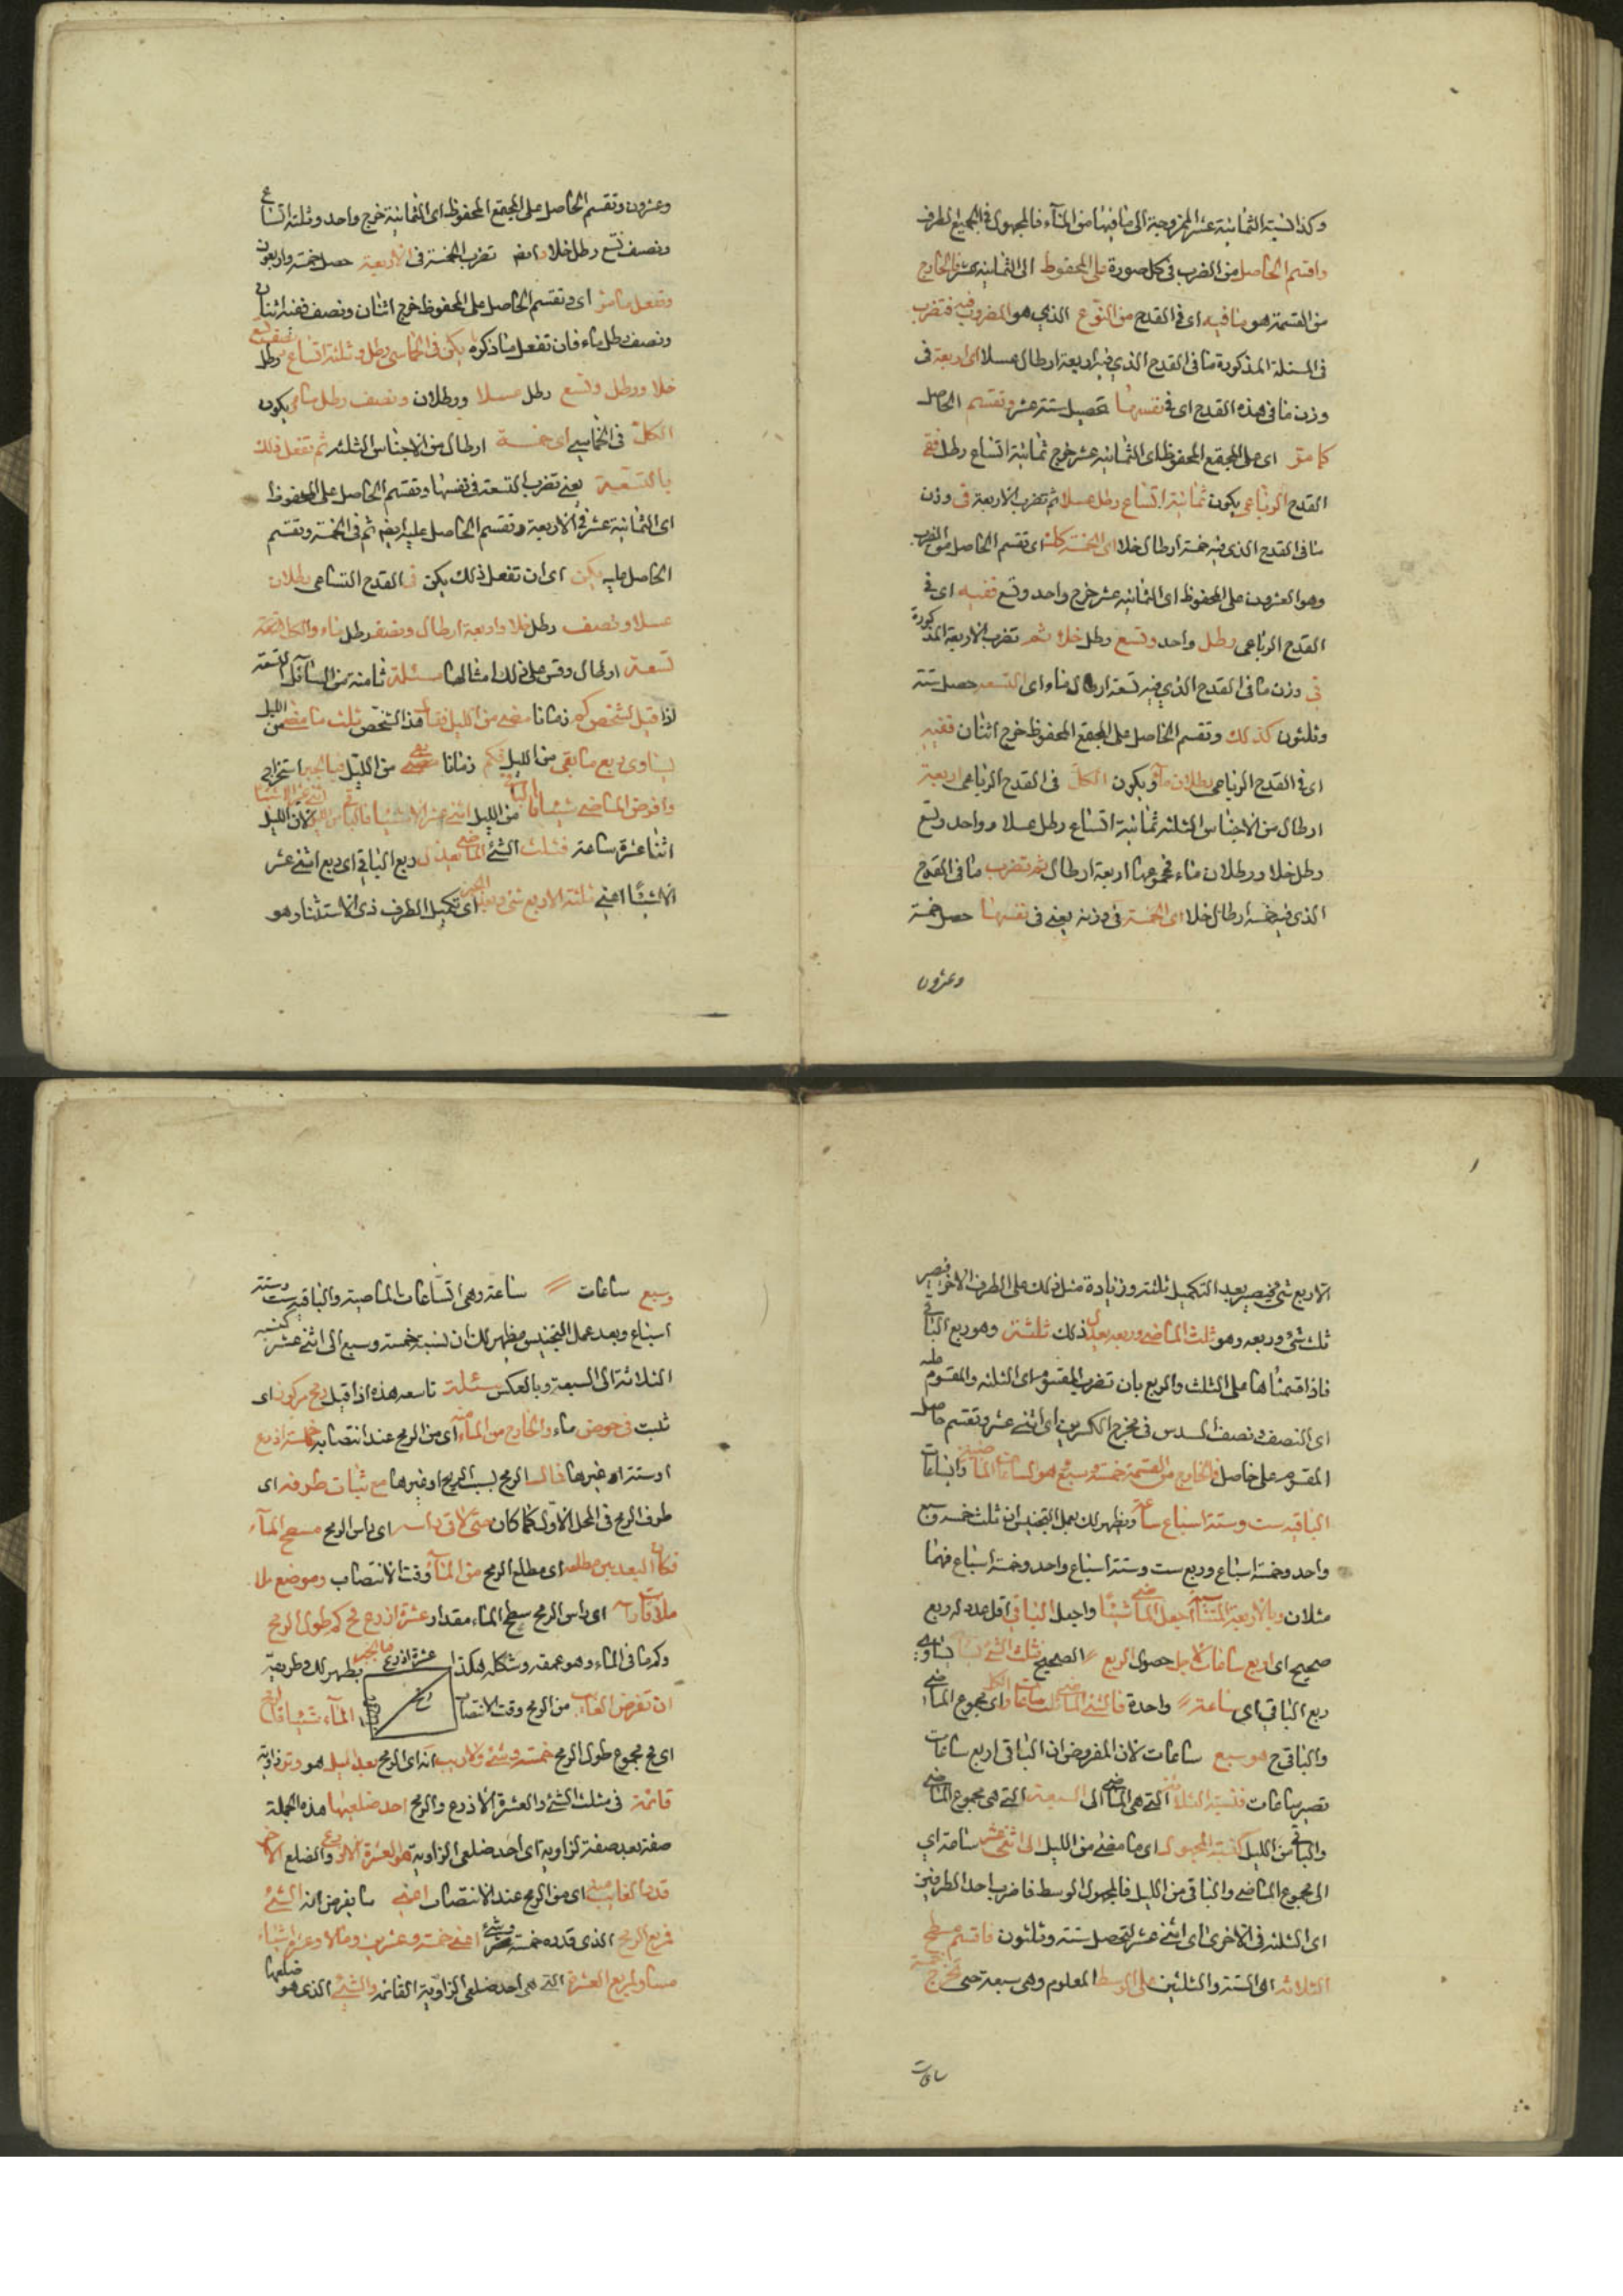 وكذا نسبة الثمانية عشر الممزوجة الى ما فيها من الماء فالمجهول في الجميع الطرف
واقسم الحاصل من الضرب في كل صورة على المحفوظ الى الثمانية عشر فالخارج
من القسمة هو ما فيه اى في القدح من النوع الذي هو المضروب فيه فتضرب
في المسئلة المذكورة ما في القدح الذي فيه اربعة ارطال عسلا اى اربعة في
وزن ما في هذه القدح اى في نفسها تحصيل ستة عشر وتقسم الحاصل
كما مر اى على المجتمع المحفوظ اى الثمانية عشر خرج ثمانية اتساع رطل ففى
القدح الرباعي يكون ثمانية اتساع رطل عسلا ثم تضرب الاربعة في وزن
ما في القدح الذي فيه خمسة ارطال خلا اى الخمسة كذلك اى تقسم الحاصل من الضرب
وهو العشرون على المحفوظ اى الثمانية عشر خرج واحد وتسع ففيه اى في
القدح الرباعي رطل واحد وتسع رطل خلا ثم تضرب الاربعة المذكورة
في وزن ما في القدح الذي فيه تسعة ارطال ماء اى التسعة حصل ستة
وثلثون كذلك وتقسم الحاصل على المجتمع المحفوظ خرج اثنان ففيه
اى في القدح الرباعي رطلان ماء ويكون الكل في القدح الرباعي اربعة
ارطال من الاجناس الثلثة ثمانية اتساع رطل عسلا وواحد وتسع
رطل خلا ورطلان ماء فمجموعها اربعة ارطال ثم تضرب ما في القدح
الذي فيه خمسة ارطال خلا اى الخمسة في وزنه يعنى في نفسها حصل خمسة
وعشرون
وعشرون وتقسم الحاصل على المجتمع المحفوظ اى الثمانية خرج واحد وثلثة اتساع
ونصف تسع رطل خلا وايضا تضرب الخمسة في الاربعة حصل خمسة واربعون
وتفعل ما مر اى وتقسم الحاصل على المحفوظ خرج اثنان ونصف ففيه اثنان
ونصف رطل ماء فان تفعل ما ذكره يكن في الخماسي رطل وثلثة اتساع ونصف تسع رطل
خلا ورطل وتسع رطل عسلا ورطلان ونصف رطل ماء يكون
الكل في الخماسي اى خمسة ارطال من الاجناس الثلثة ثم تفعل ذلك
بالتسعة يعنى تضرب التسعة في نفسها وتقسم الحاصل على المحفوظ
اى الثمانية عشر في الاربعة وتقسم الحاصل عليه ايضا ثم في الخمسة وتقسم
الحاصل عليه يكن اى ان تفعل ذلك يكن في القدح التساعي رطلان
عسلا ونصف رطل خلا واربعة ارطال ونصف رطل ماء والكل
تسعة ارطال وقس على ذلك امثالها مسئلة ثامنة من المسائل التسعة
اذا قيل لشخص كم زمانا مضى من الليل فقال هذا الشخص ثلث ما مضى من الليل
يساوي ربع ما بقى من الليل فكم زمانا مضى من الليل فبالجبر استخراج
وافرض الماضي شيئا فالباقي من الليل اثنى عشر الا شيئا لان الليل
اثنا عشرة ساعة فثلث الشئ الماضي يعدل ربع الباقي اى ربع اثنى عشر
الا شيئا اعنى ثلثة الا ربع شئ وبعد الجبر اى تكميل الطرف ذى الاستثناء وهو
الا ربع شئ فيصير بعد التكميل ثلثة وزيادة مثل ذلك على الطرف الاخر فيصير
ثلث شئ وربعه وهو ثلث الماضي وربعه يعدل ذلك ثلثة وهو ربع الباقي
فاذا قسمناها على الثلث والربع بان تضرب المقسوم اى الثلثة والمقسوم عليه
اى النصف ونصف السدس في مخرج الكسرين اى اثنى عشر وتقسم حاصل
المقسوم على حاصل فالخارج من القسمة خمسة وسبع هو الساعات الماضية والساعات
الباقية ست وستة اسباع ساعة ويظهر لك بعمل التجنيس ان ثلث خمسة وسبع
واحد وخمسة اسباع وربع ست وستة اسباع واحد وخمسة اسباع فهما
مثلان وبالاربعة المتناسبة اجعل الماضي شيئا واجعل الباقي اقل عدد له ربع
صحيح اى اربع ساعات لاجل حصول الربع الصحيح فثلث الشئ يساوي
ربع الباقي اى ساعة واحدة فالشئ الماضي ثلث ساعات والكل اى مجموع الماضي
والباقي ح هو سبع ساعات لان المفروض ان الباقي اربع ساعات
تصير ساعات فنسبة الثلاثة التي هي الماضي الى السبعة التي هي مجموع الماضي
والباقي من الليل كنسبة المجهول اى ما مضى من الليل الى اثنى عشر ساعة اى
الى مجموع الماضي والباقي من الليل فالمجهول الوسط فاضرب احد الطرفين
اى الثلثة في الاخرى اى اثنى عشر لتحصل ستة وثلثون فاقسم مسطح
الثلاثة اى الستة والثلثين على الوسط المعلوم وهي سبعة حتى تخرج خمسة
ساعات
وسبع ساعات ساعة وهي الساعات الماضية والباقية ست وستة
اسباع وبعد عمل التجنيس يظهر لك ان نسبة خمسة وسبع الى اثنى عشر كنسبة
الثلاثة الى السبعة وبالعكس مسئلة تاسعة هذه اذا قيل رمح مركوز اى
ثلبت في حوض ماء والخارج من الماء منه اى من الرمح عند انتصابه خمسة اذرع
او ستة او غيرها فمال الرمح بسبب الريح او غيرها مع ثبات طرفه اى
طرف الرمح في المحل الاول كما كان حتى لاقى راسه اى راس الرمح مسطح الماء
فكان البعد بين مطلعه اى مطلع الرمح من الماء وقت الانتصاب وموضع ملا
ملاقاته اى راس الرمح سطح الماء مقدار عشرة اذرع فح كم طول الرمح
وكم ما في الماء وهو عمقه وشكله هكذا عشرة اذرع فبالجبر يظهر لك وطريقه
ان تفرض الغائب من الرمح وقت الانتصاب الماء شيئا فالرمح
اى فح مجموع طول الرمح خمسة وشئ ولا ريب انه اى الرمح بعد الميل هو وتر زاوية
قائمة في مثلث الشئ والعشرة الاذرع والرمح احد ضلعيها هذه الجملة
صفة بعد صفة لزاوية اى احد ضلعى الزاوية هو العشرة الاذرع والضلع الاخر
قدر الغائب منه اى من الرمح عند الانتصاب اعنى ما يفرض انه الشئ
فمربع الرمح الذي قدره خمسة وشئ اعنى خمسة وعشرين ومالا وعشرة اشياء
مساو لمربع العشرة التي هي احد ضلعى الزاوية القائمة والشئ الذي هو ضلعها